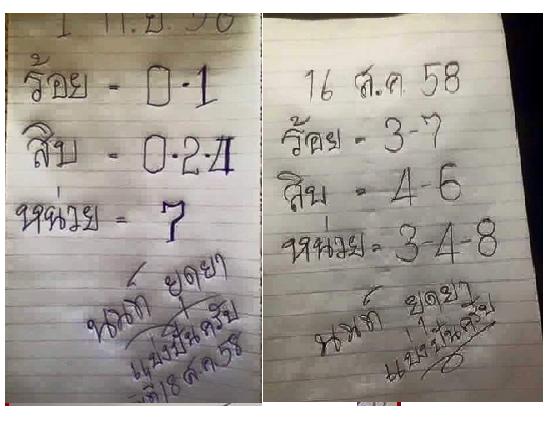 1 ก.ย. 58
ร้อย - 0-1
สิบ - 0-2-4
หน่วย = 7
นนท์ ยุดยา
แบ่งปันครับ
18 ส.ค 58
16 ส.ค. 58
ร้อย - 3-7
สิบ - 4-6
หน่วย = 3-4-8
นนท์ ยุดยา
แบ่งปันครับ